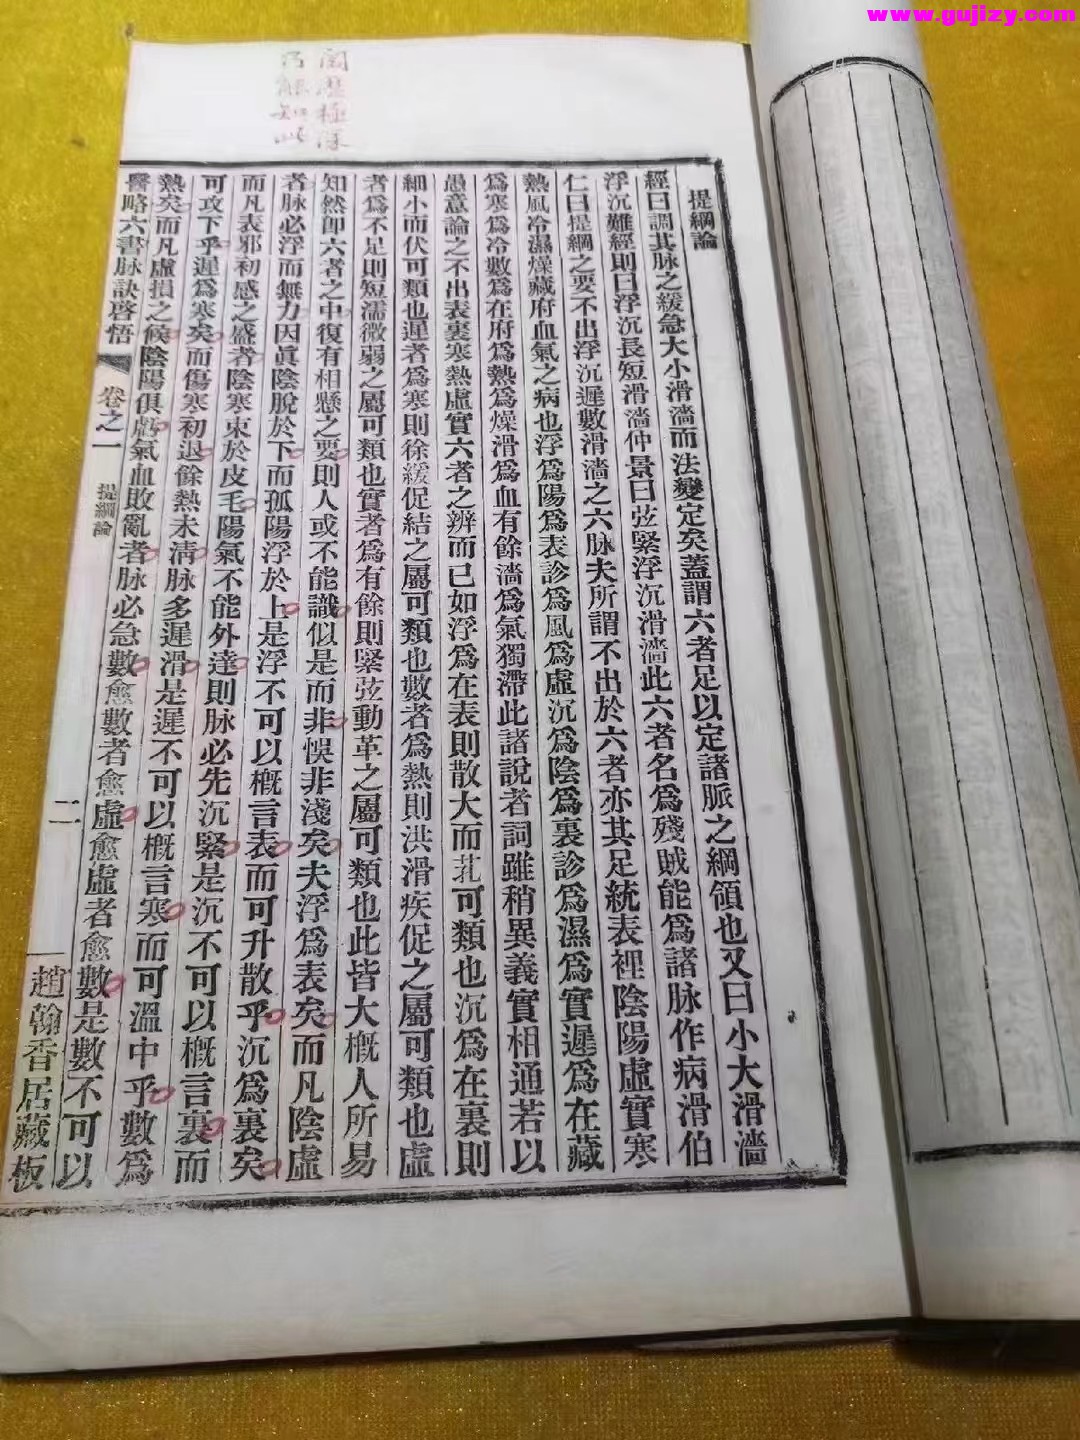 www.gujizy.com
閱歷極深
乃能知此
提綱論
經曰調其脉之緩急大小滑濇而法變定矣蓋謂六者足以定諸脈之綱領也又曰小大滑濇
浮沉難經則曰浮沉長短滑濇仲景曰弦緊浮沉滑濇此六者名爲殘賊能爲諸脉作病滑伯
仁曰提綱之要不出浮沉遲數滑濇之六脉夫所謂不出於六者亦其足統表裡陰陽虛實寒
熱風冷濕燥藏府血氣之病也浮爲陽爲表診爲風爲虛沉爲陰爲裏診爲濕爲實遲爲在藏
爲寒爲冷數爲在府爲熱爲燥滑爲血有餘濇爲氣獨滯此諸說者詞雖稍異義實相通若以
愚意論之不出表裏寒熱虛實六者之辨而已如浮爲在表則散大而芤可類也沉爲在裏則
細小而伏可類也遲者爲寒則徐緩促結之屬可類也數者爲熱則洪滑疾促之屬可類也虛
者爲不足則短濡微弱之屬可類也實者爲有餘則緊弦動革之屬可類也此皆大概人所易
知然卽六者之中復有相懸之要則人或不能識似是而非悞非淺矣夫浮爲表矣而凡陰虛
者脉必浮而無力因眞陰脫於下而孤陽浮於上是浮不可以概言表而可升散乎沉爲裏矣
而凡表邪初感之盛者陰寒束於皮毛陽氣不能外達則脉必先沉緊是沉不可以概言裏而
可攻下乎遲爲寒矣而傷寒初退餘熱未淸脉多遲滑是遲不可以概言寒而可溫中乎數爲
熱矣而凡虛損之候陰陽俱虧氣血敗亂者脉必急數愈數者愈虛愈虛者愈數是數不可以
醫略六書脉訣啓悟 卷之一 提綱論 二 趙翰香居藏板